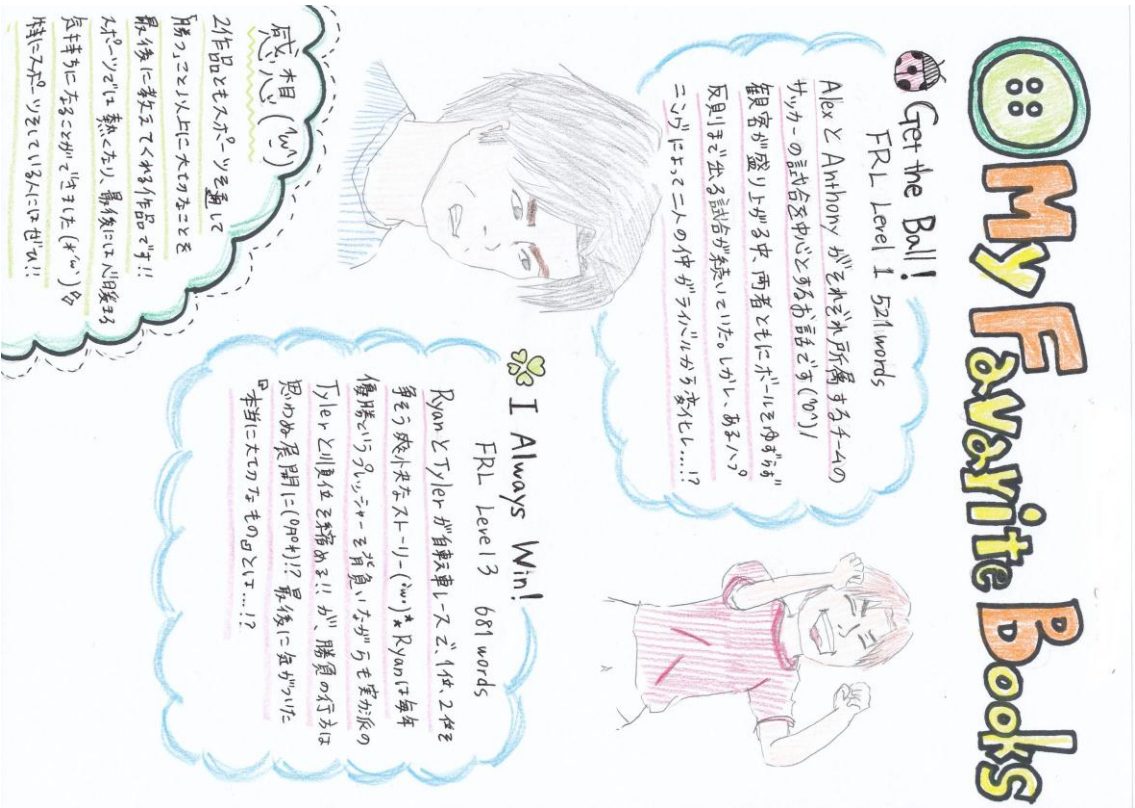 My Favorite Books
Get the Ball!
FRL Level 1 521 words
AlexとAnthonyがそれぞれ所属するチームの
サッカーの試合を中心とするお話です(^o^)/
観客が盛り上がる中、両者ともにボールをゆずらず
反則まで出る試合が続いていた。しかし、あるハプ
ニングによって二人の仲がライバルから変化し…!?
I Always Win!
FRL Level 3 681 words
RyanとTylerが自転車レースで、1位、2位を
争そう爽快なストーリー(・ω・)* Ryanは毎年
優勝というプレッシャーを背負いながらも実力派の
Tylerと順位を縮める!! が、勝負の行方は
思わぬ展開に(°Д°*)!? 最後に気がついた
『本当に大切なもの』とは…!?
感想(^ω^)
2作品ともスポーツを通して
「勝つ」こと以上に大切なことを
最後に教えてくれる作品です!!
スポーツでは熱くなり、最後には心温まる
気持ちになることができました(*^ω^)
特にスポーツをしている人にはぜひ!!